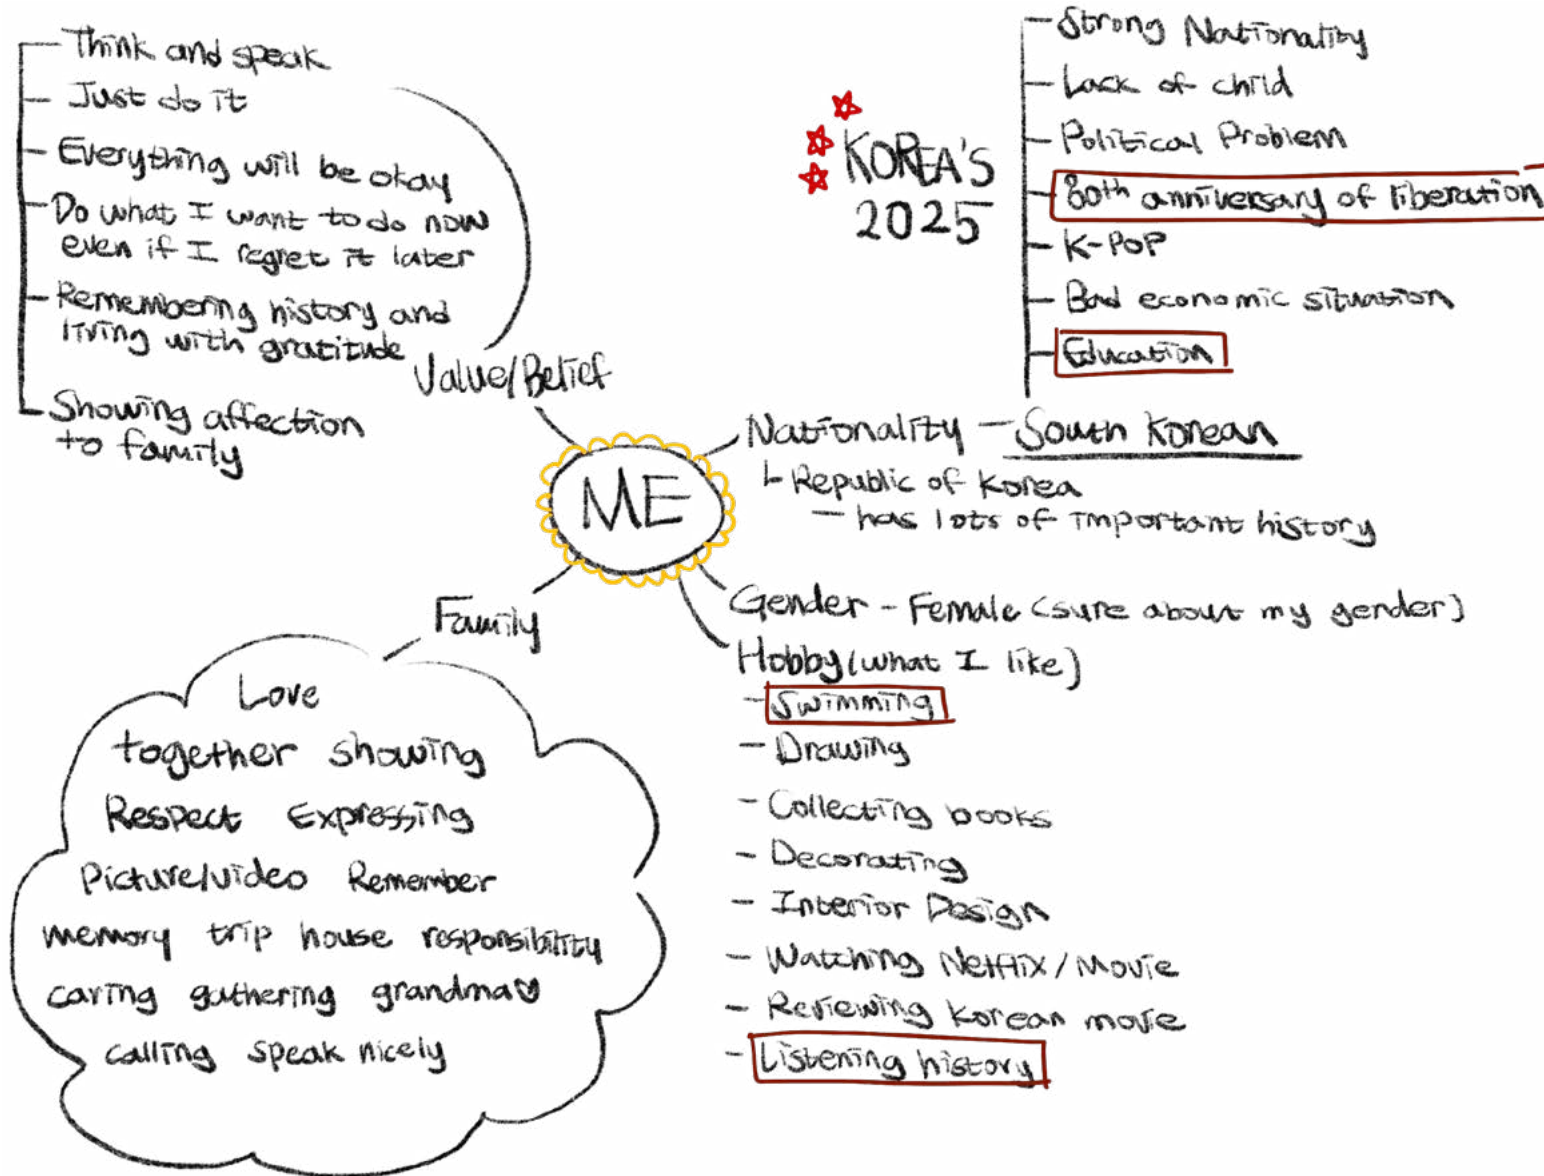 Think and speak
Just do it
Everything will be okay
Do what I want to do now
even if I regret it later
Remembering history and
living with gratitude
Showing affection
to family
Value/Belief
KOREA'S
2025
Strong Nationality
Lack of child
Political Problem
80th anniversary of liberation
K-POP
Bad economic situation
Education
ME
Nationality - South Korean
Republic of Korea
- has lots of important history
Gender - Female (sure about my gender)
Hobby (what I like)
- Swimming
- Drawing
- Collecting books
- Decorating
- Interior Design
- Watching Netflix/Movie
- Reviewing Korean movie
- Listening history
Family
Love
together showing
Respect Expressing
Picture/video Remember
memory trip house responsibility
caring gathering grandma♡
calling speak nicely